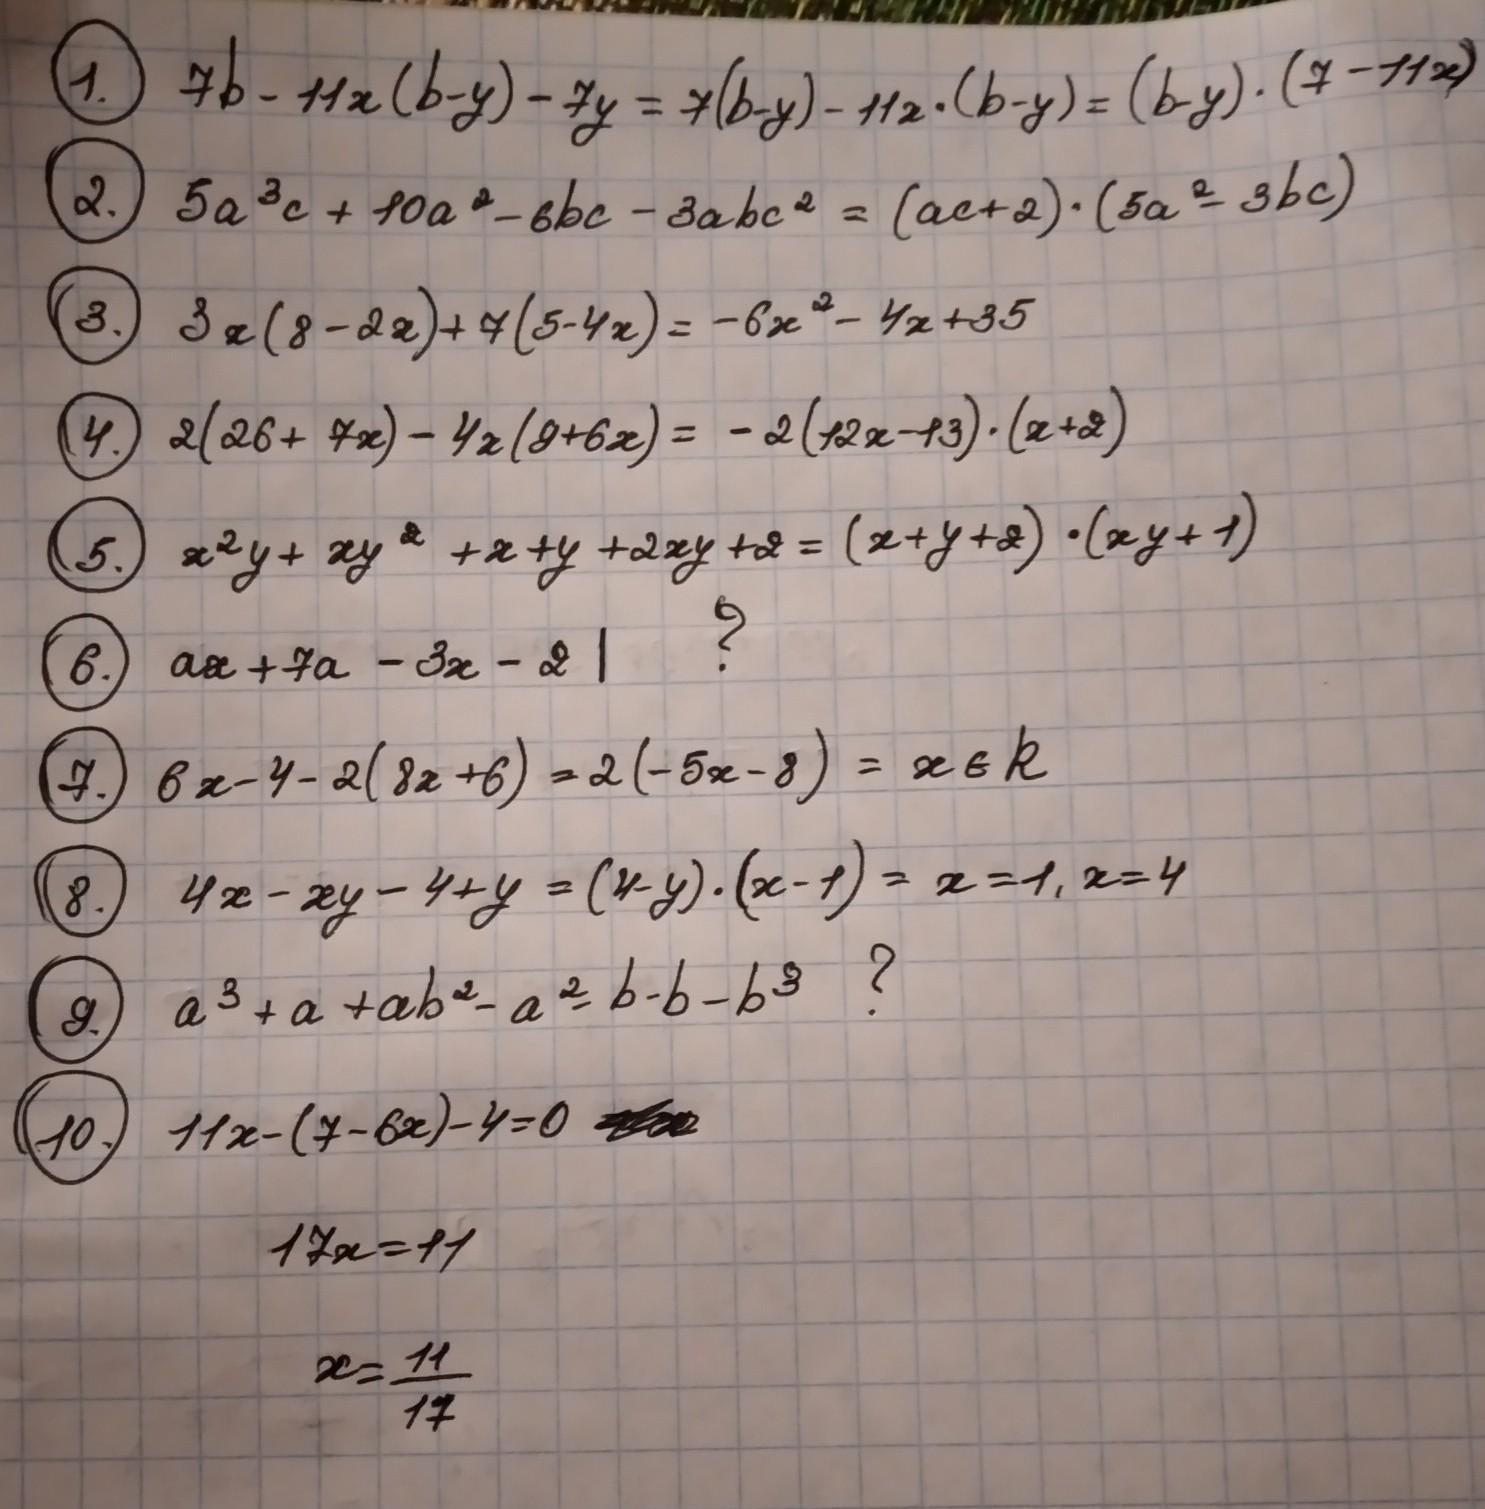 1. 7b - 11x(b-y) - 7y = 7(b-y) - 11x·(b-y) = (b-y)·(7-11x)
2. 5a³c + 10a² - 6bc - 3abc² = (ac+2)·(5a² - 3bc)
3. 3x(8-2x) + 7(5-4x) = -6x² - 4x + 35
4. 2(26 + 7x) - 4x(9+6x) = -2(12x-13)·(x+2)
5. x²y + xy² + x + y + 2xy + 2 = (x+y+2)·(xy+1)
6. ax + 7a - 3x - 21 ?
7. 6x - 4 - 2(8x+6) = 2(-5x-8) = x ∈ k
8. 4x - xy - 4 + y = (4-y)·(x-1) = x=1, x=4
9. a³ + a + ab² - a² - b - b - b³ ?
10. 11x - (7-6x) - 4 = 0
17x = 11
x = 11/17